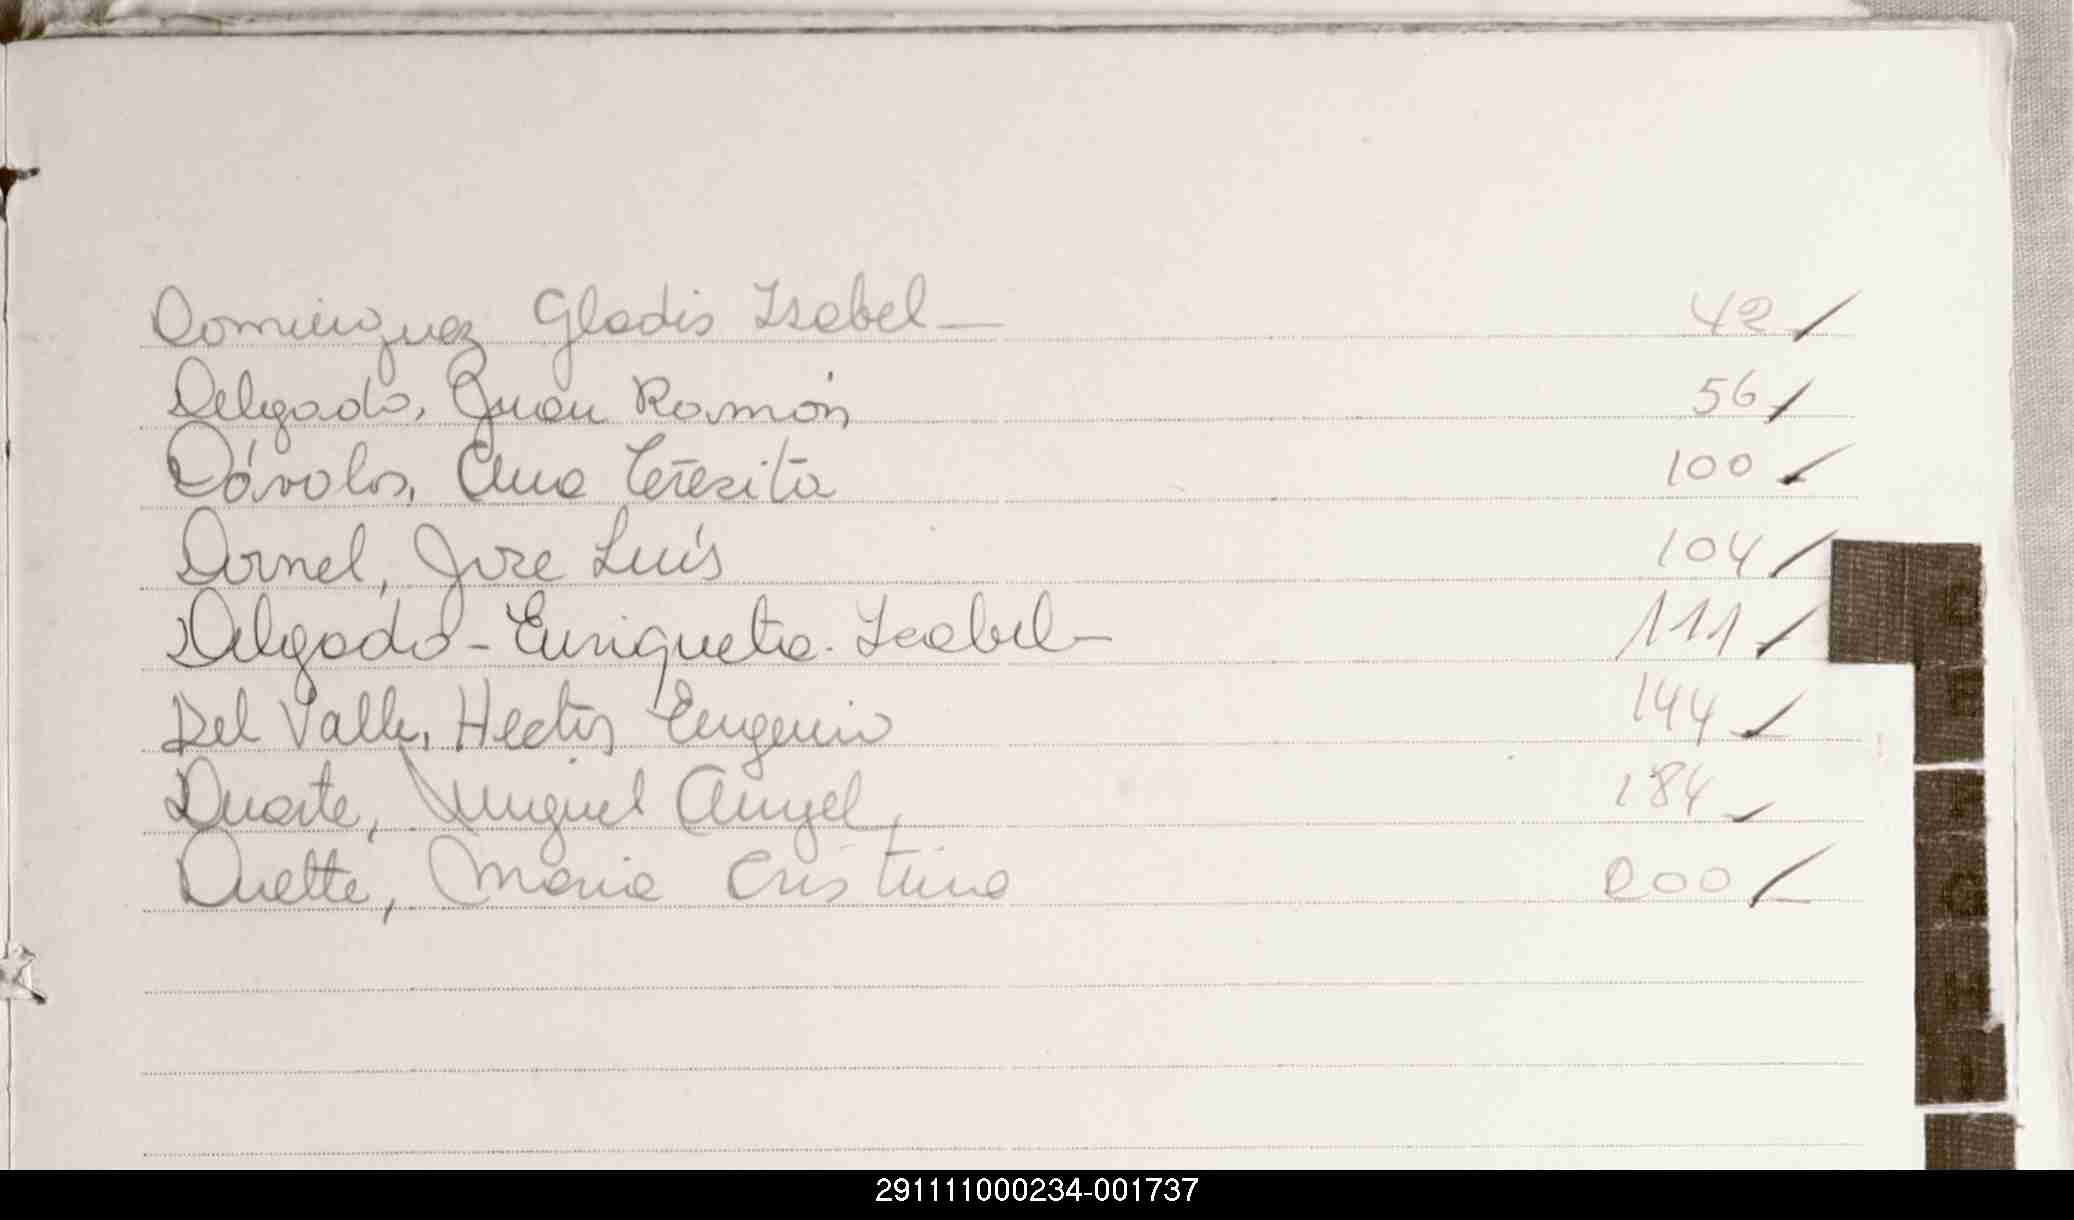 Dominguez Gladis Isabel — 42
Delgado, Juan Ramón 56
Dávalos, Ana Teresita 100
Dornel, Jose Luís 104
Delgado - Enriqueta. Isabel — 111
Del Valle, Hector Eugenio 144
Duarte, Miguel Angel, 184
Duette, Maria Cristina 200
D
E
F
G
H
I
291111000234-001737